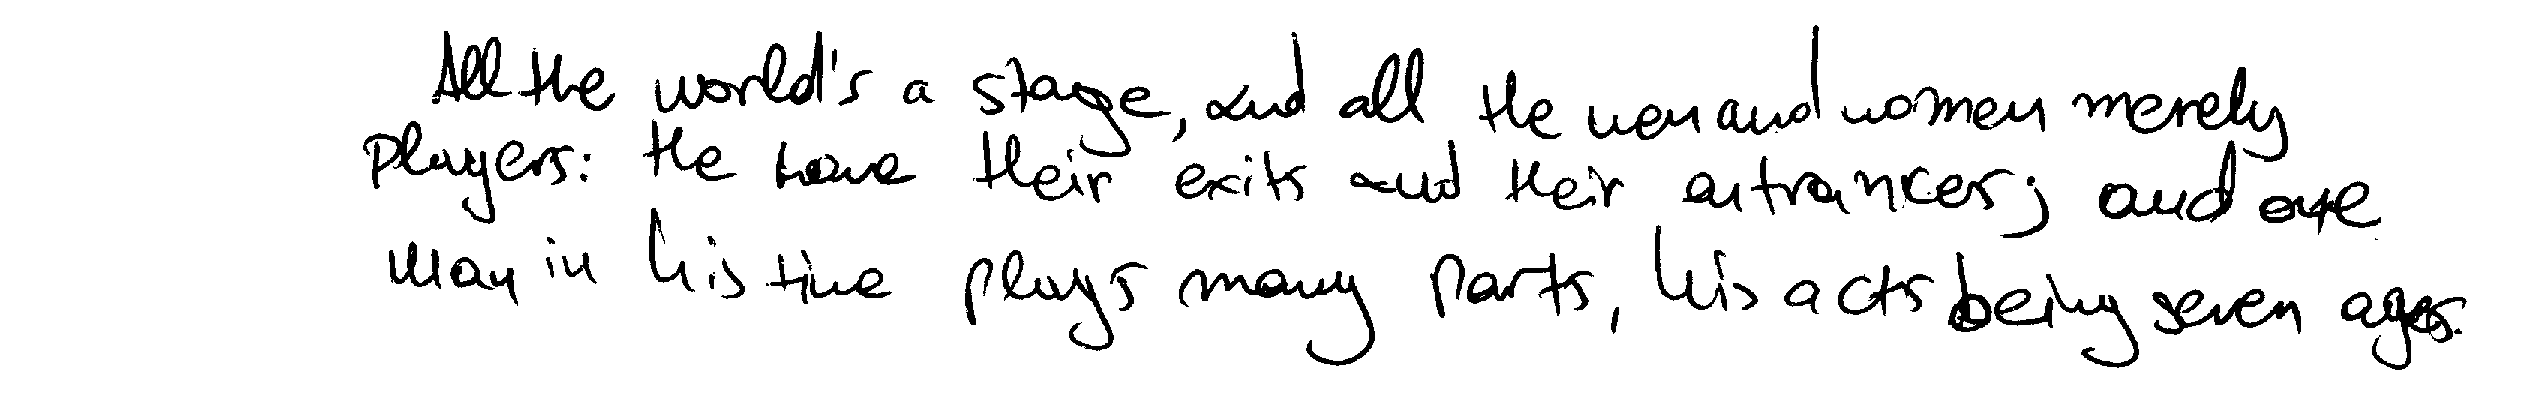 All the world's a stage, and all the men and women merely
players: the have their exits and their entrances; and one
man in his time plays many parts, his acts being seven ages.